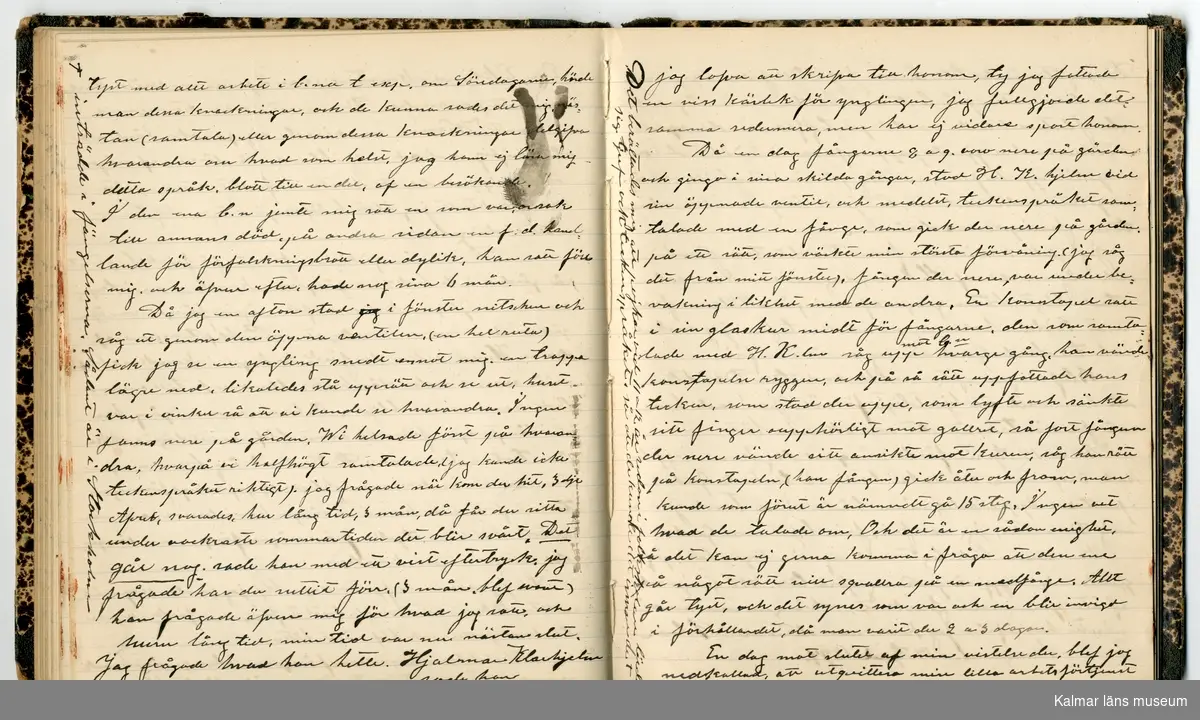 tyst med allt arbete i b.na t exp. om Söndagarne, hörde
man dessa knackningar, och de kunna sades det mig
tan (samtala) eller genom dessa knackningar delgifva
hvarandra om hvad som helst, jag kom ej lära mig
detta språk, blott till en del, af en besökande.
I den ena b.n jemte mig satt en som var orsak
till annans död, på andra sidan en f. d. hand-
lande för förfalskningsbrott eller dylik, han satt före
mig och äfven efter, hade nog sina 6 mån.
Då jag en afton stod i fönster nitschen och
såg ut genom den öppna ventilen, (en hel ruta)
fick jag se en yngling snedt emot mig en trappa
lägre ned, likaledes stå upprätt och se ut, huset
var i vinkel så att vi kunde se hvarandra. Ingen
fanns nere på gården, Wi helsade först på hvaran
dra, hvarpå vi halfhögt samtalade, (jag kunde icke
teckenspråket riktigt). jag frågade när kom du hit, 3dje
April, svarades, hur lång tid, 3 mån, då får du sitta
under vackraste sommartiden det blir svårt, Det
går nog. sade han med ett visst eftertryck, jag
frågade har du suttit förr. (3 mån. blef svaret)
han frågade äfven mig för hvad jag satt, och
huru lång tid, min tid var nu nästan slut.
Jag frågade hvad han hette. Hjalmar Klarhjelm
sade han
inträde i fängelserna.
jag lofva att skrifva till honom, ty jag fattade
en viss kärlek för ynglingen, jag fullgjorde det-
samma sedermera, men har ej vidare sport honom.
Då en dag fångarne 8 a 9. voro nere på gården
och gingo i sina skilda gångar, stod H. K. hjelm vid
sin öppnade ventil, och medelst, teckenspråket sam-
talade med en fånge, som gick der nere på gården
på ett sätt, som väckte min största förvåning, (jag såg
det från mitt fönster), fången der nere, var under be-
vakning i likhet med de andra, En konstapel satt
i sin glaskur midt för fångarne, den som samta-
lade med H. K. lm såg upp mot Gn hvarge gång, han vände
konstapeln ryggen, och på så sätt uppfattade hans
tecken, som stod der uppe, som lyfte och sänkte
sitt finger oupphörligt mot gallret, så fort fången
der nere vände sitt ansikte mot kuren, såg han rätt
på konstapeln (han fången) gick åter och fram, man
kunde som förut är nämndt gå 15 steg, Ingen vet
hvad de talade om, Och det är en sådan enighet,
så det kan ej gerna komma i fråga att den ene
på något sätt vill sqvallra på en medfånge. Allt
går tyst, och det synes som var och en blir invigd
i förhållandet, då man varit der 2 a 3 dagar.
En dag mot slutet af min vistelse der, blef jag
nedkallad, att utqvittera min lilla arbetsförtjenst
Det berättades mig att
Kalmar läns museum